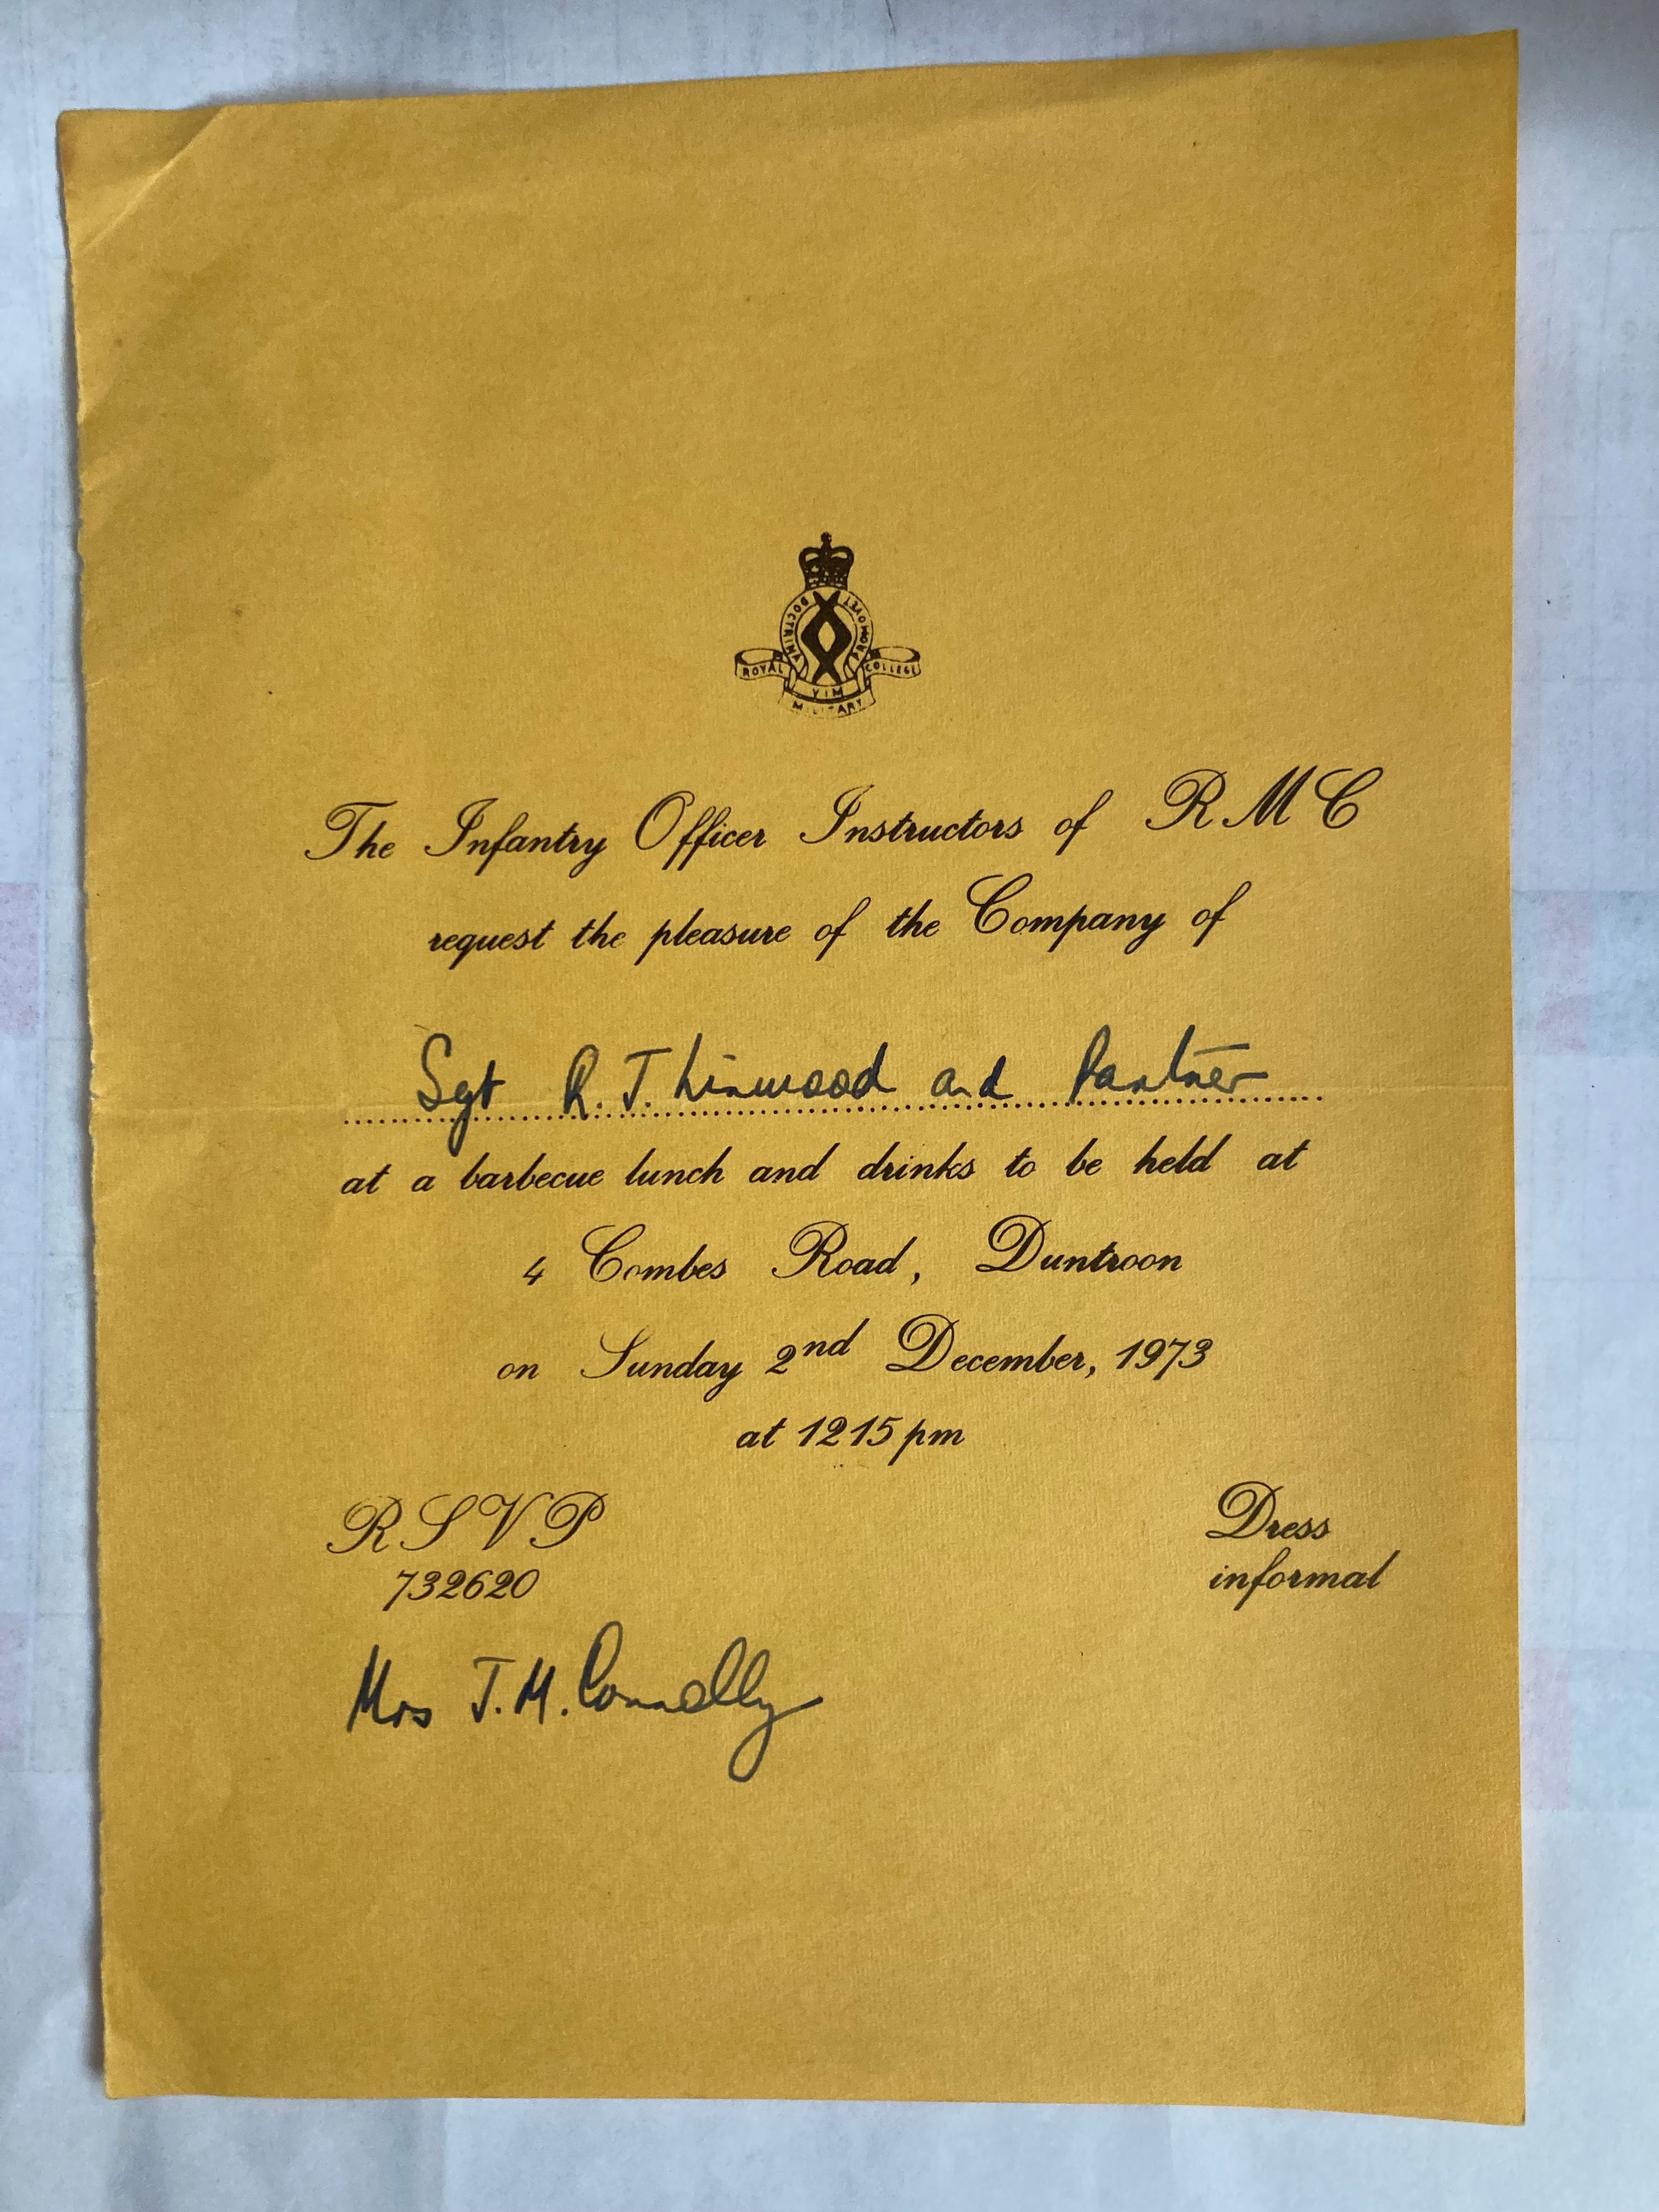 DOCTRINA VIM PROMOVET
ROYAL MILITARY COLLEGE
The Infantry Officer Instructors of R M C
request the pleasure of the Company of
Sgt R. J. Linwood and Partner
at a barbecue lunch and drinks to be held at
4 Combes Road, Duntroon
on Sunday 2nd December, 1973
at 1215 pm
R S V P
732620
Dress
informal
Mrs J. M. Connolly